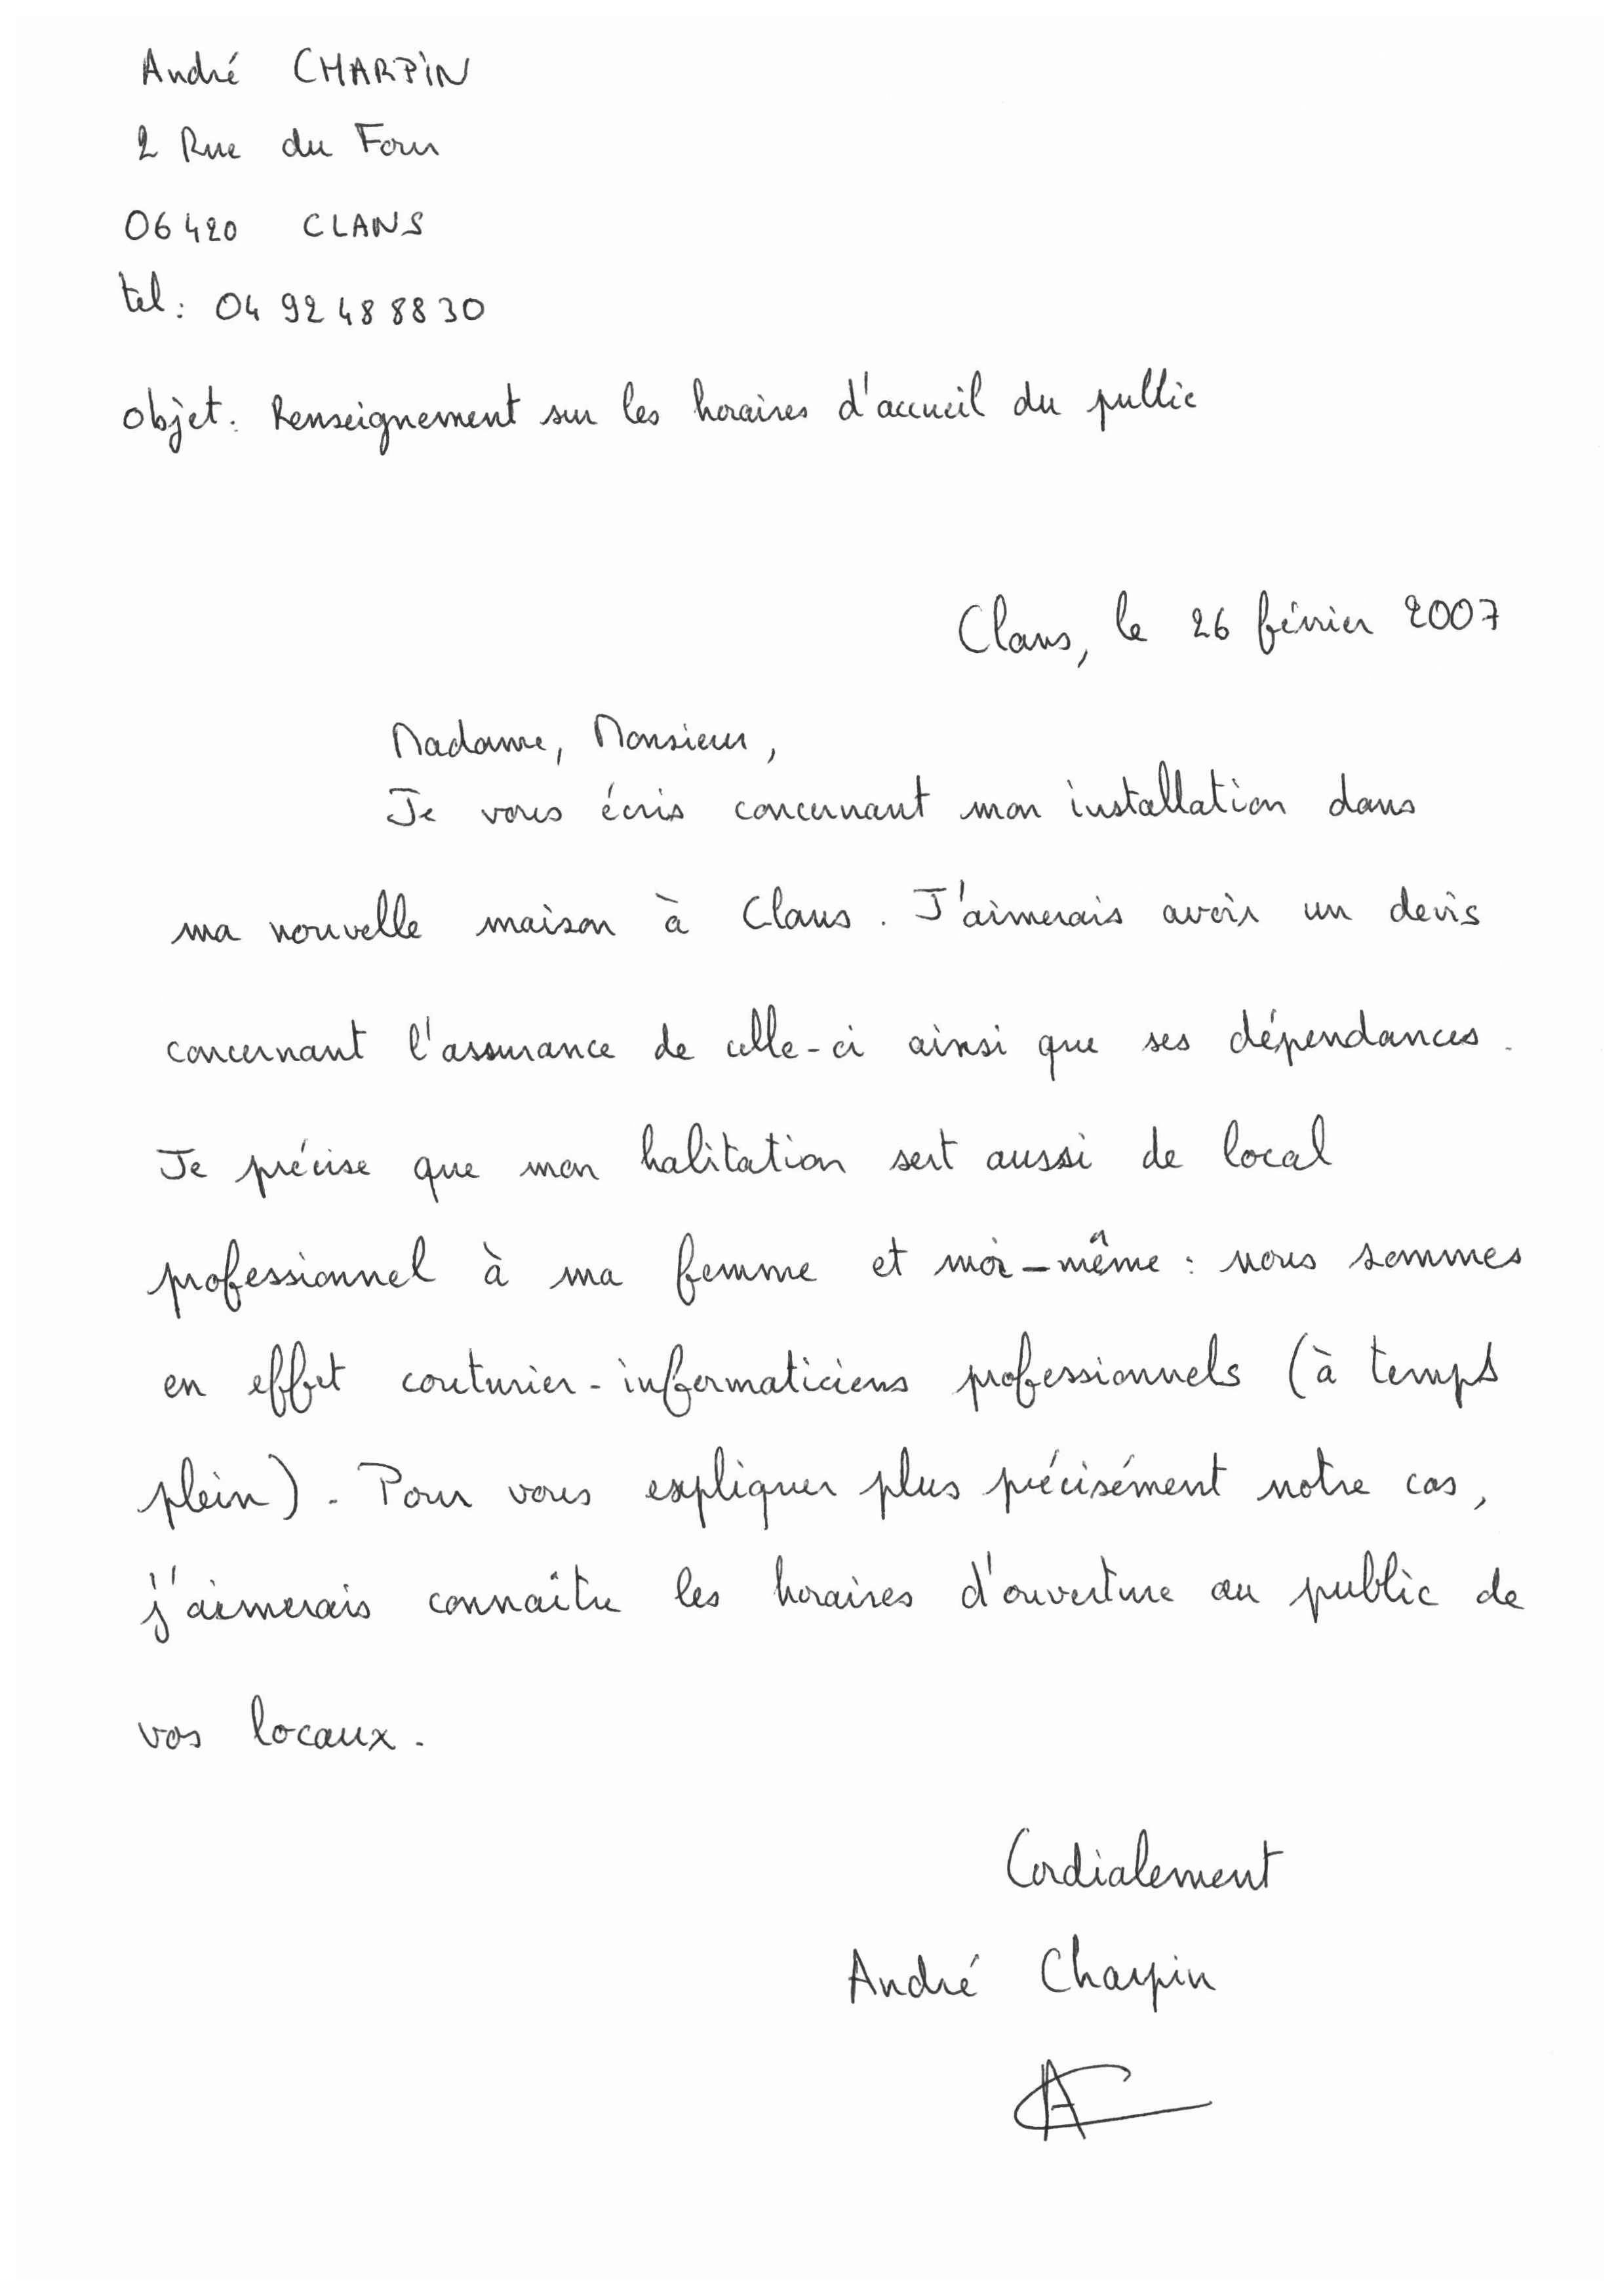 André CHARPIN
2 Rue du Four
06420 CLANS
tel: 04 92 48 88 30
objet: Renseignement sur les horaires d'accueil du public
Clans, le 26 février 2007
Madame, Monsieur,
Je vous écris concernant mon installation dans
ma nouvelle maison à Clans. J'aimerais avoir un devis
concernant l'assurance de celle-ci ainsi que ses dépendances.
Je précise que mon habitation sert aussi de local
professionnel à ma femme et moi-même : nous sommes
en effet couturier-informaticiens professionnels (à temps
plein). Pour vous expliquer plus précisément notre cas,
j'aimerais connaître les horaires d'ouverture au public de
vos locaux.
Cordialement
André Charpin
AC